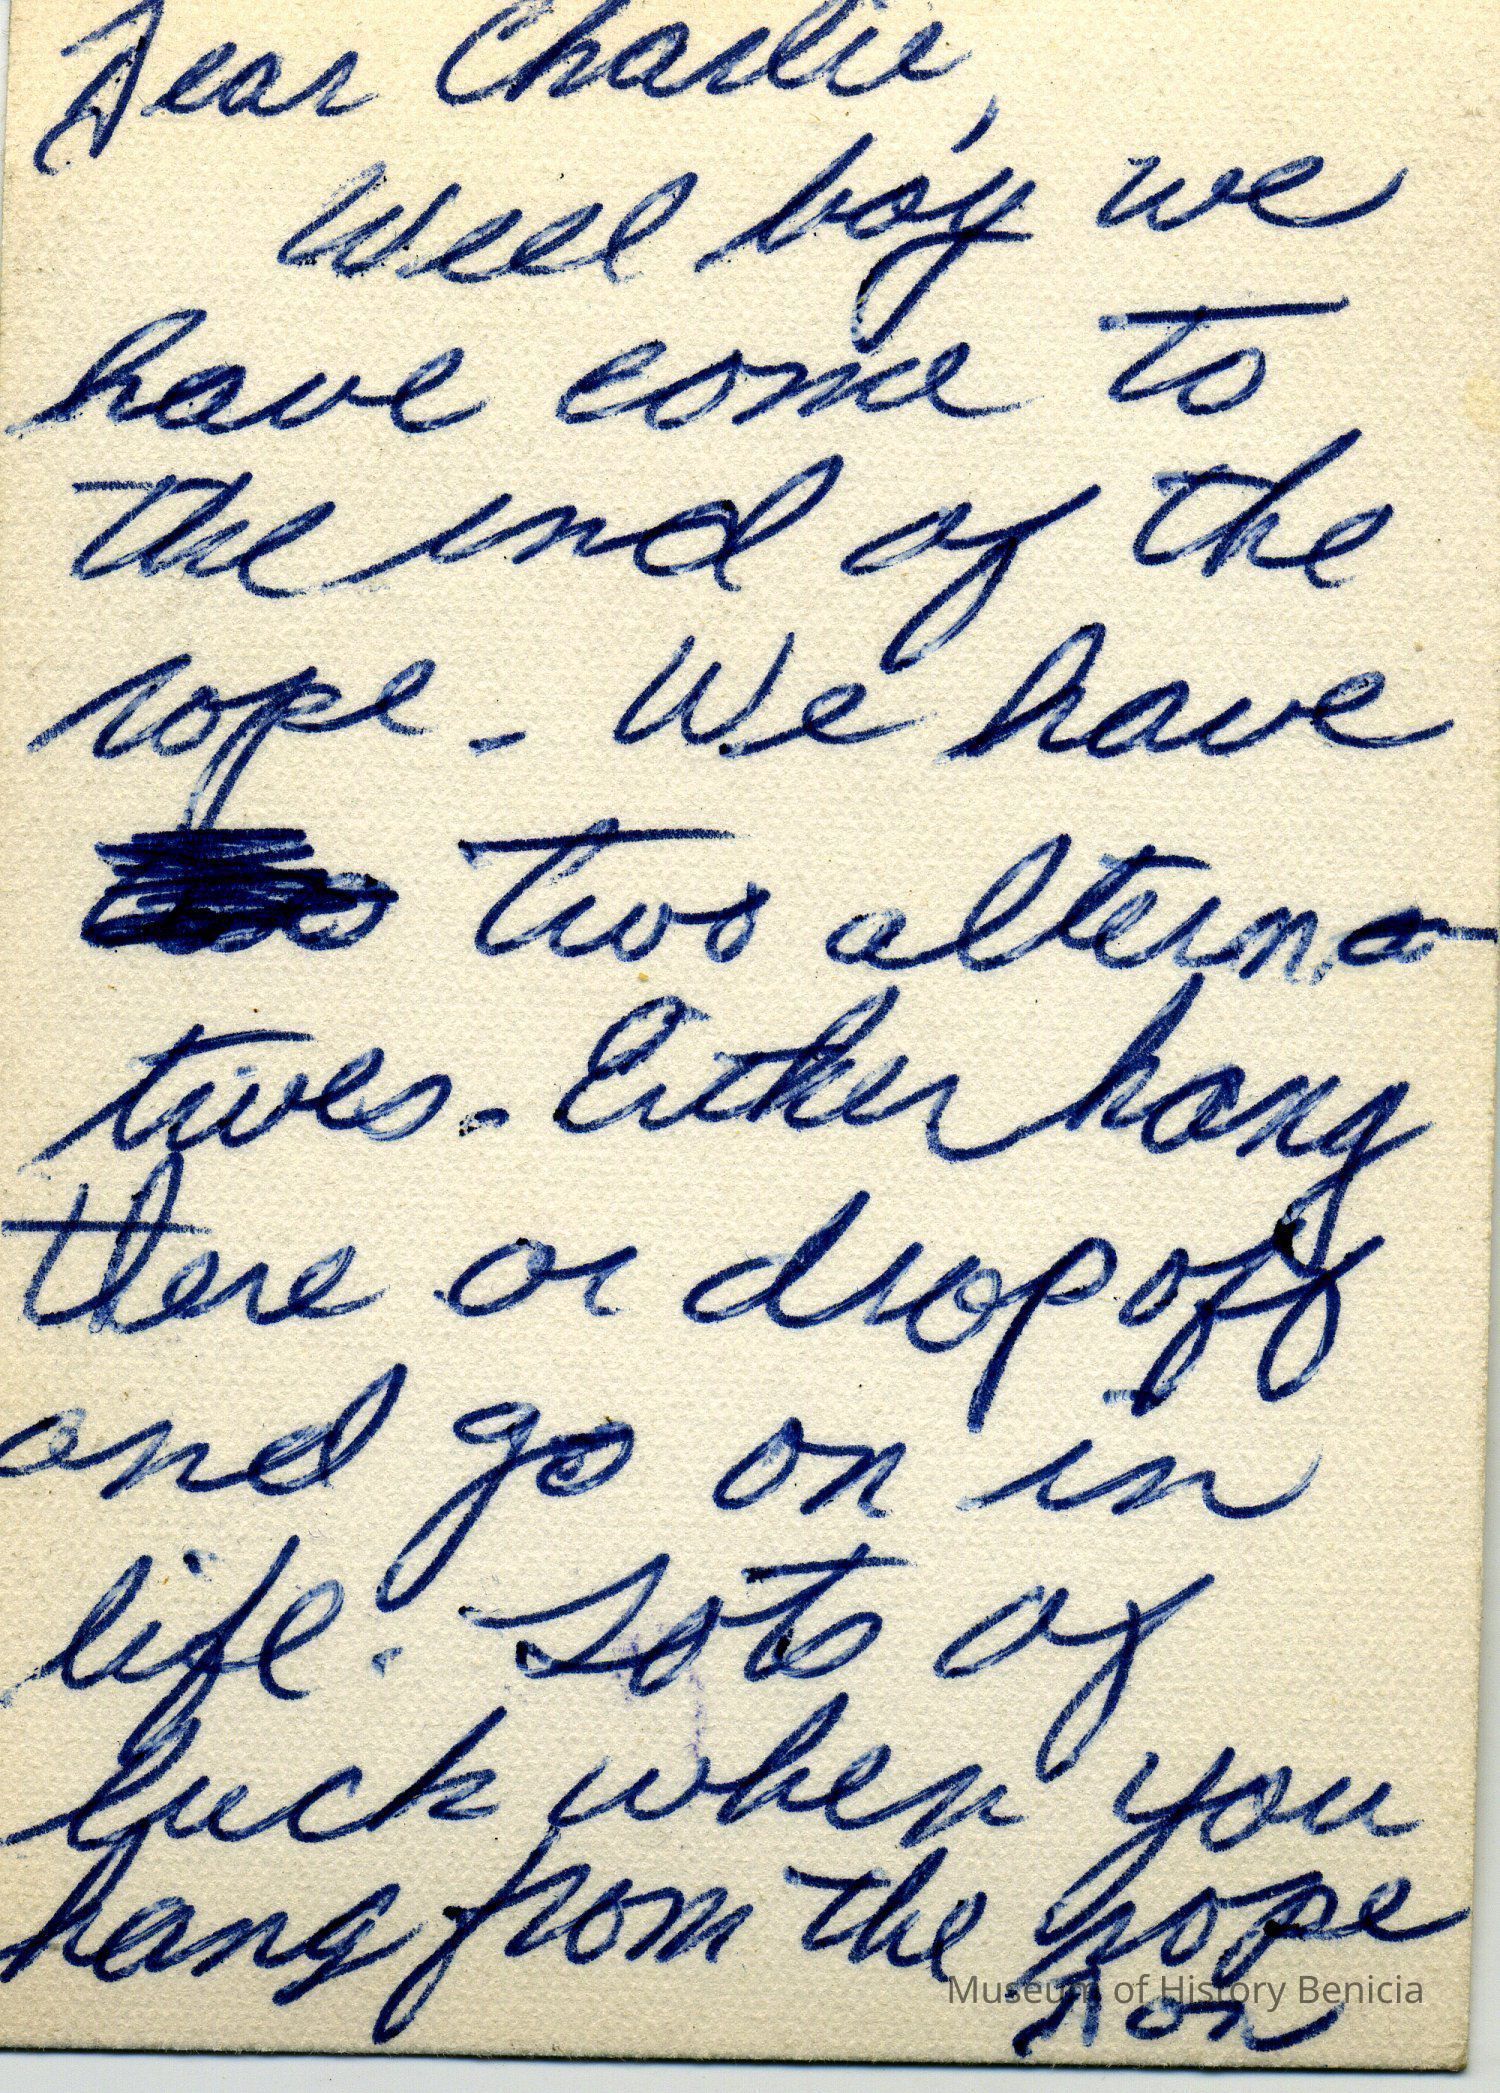 Dear Charlie,
Well boy we
have come to
the end of the
rope - We have
two alterna-
tives - Either hang
there or drop off
and go on in
life. Lots of
luck when you
hang from the rope
Don
Museum of History Benicia